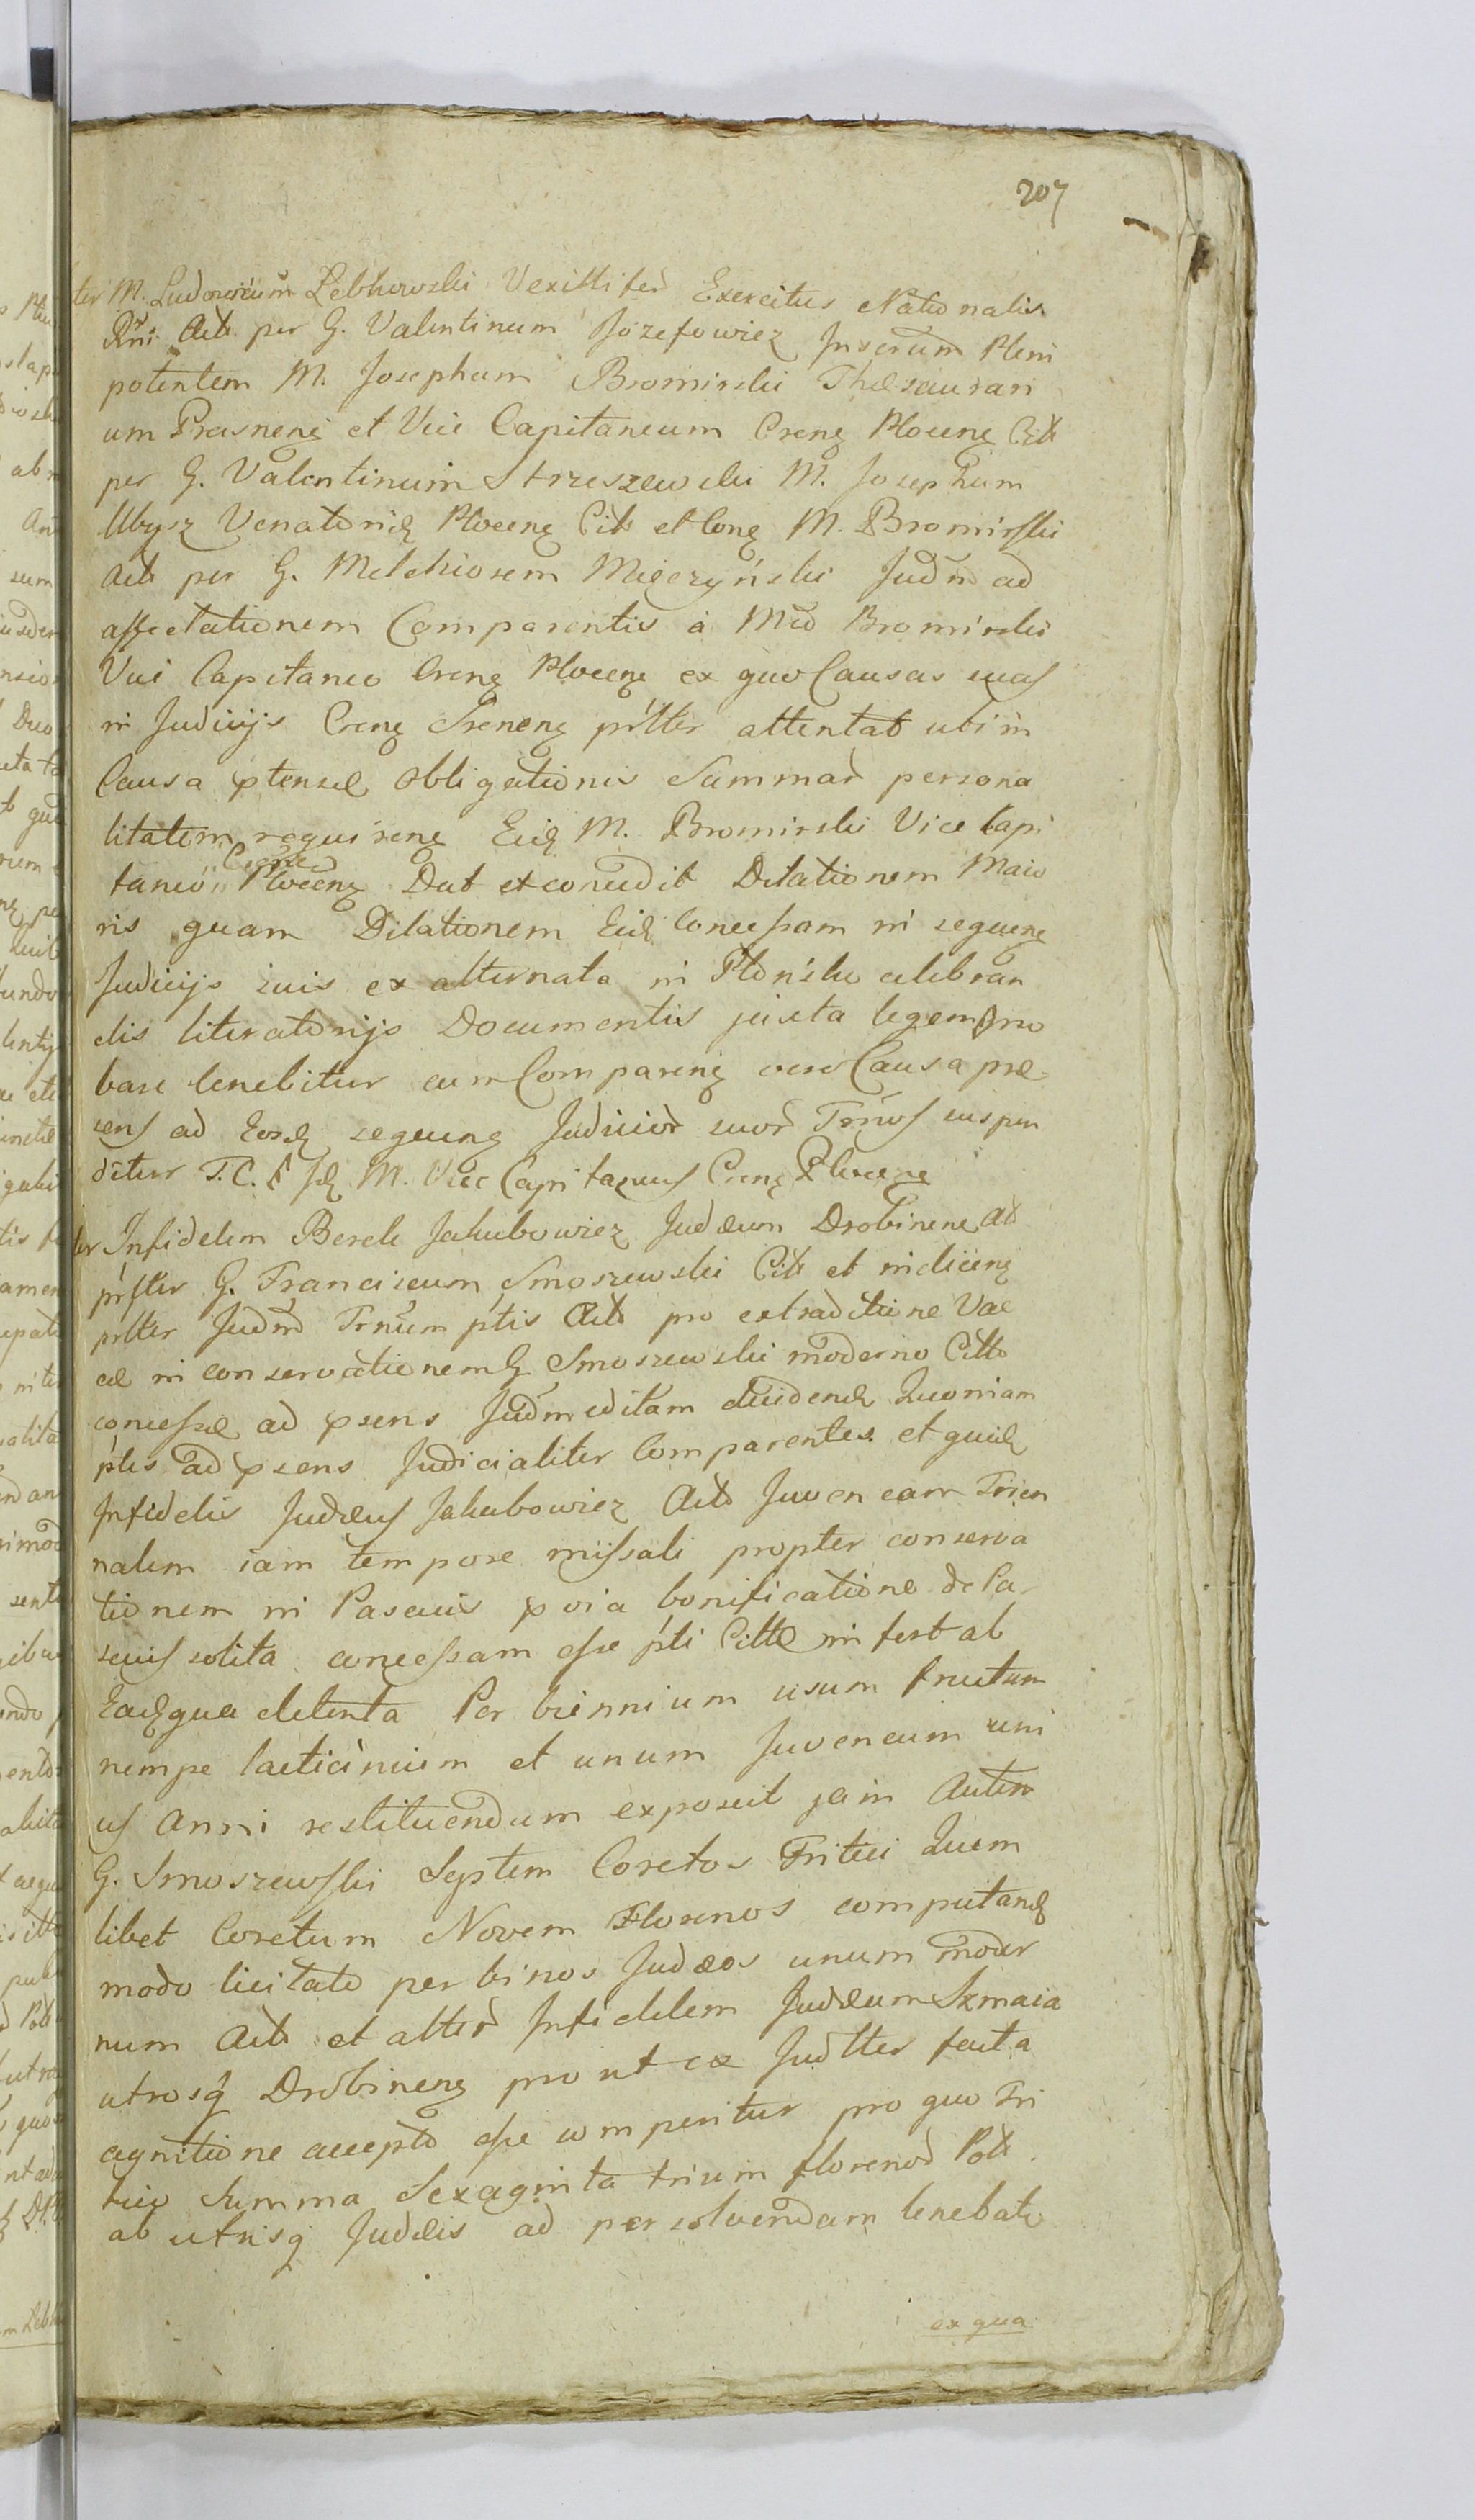 207
ter M. Ludovicum Zebkowski Vexillifer Exercitus Nationalis
Rni Act per G. Valentinum Jozefowicz Juserum Pleni
potentem M. Josephum Bromirski Thesaurari
um Prasnens et Vice Capitaneum Crens Plocens Cit
per G. Valentinum Strzeszewski M. Josephum
Ubysz Venatorid Plocens Cit et Cons M. Bromirski
Act per G. Melchiorem Mięczyński Judm ad
affectationem Comparentis a Mco Bromirski
Vice Capitaneo Crens Plocens ex quo Causas suas
in Judicijs Crens Srenens prtter attentat ubi in
Causa ptensæ Obligationis Summar persona
litatem requirens Eid M. Bromirski Vice Capi
taneo Crens Plocens Dat et concedit Dilationem Maio
ris quam Dilationem Eid Concessam in sequens
Judicijs suis ex alternata in Płońsko celebran
dis literatorijs Documentis juxta legem pro
bare tenebitur cum Comparens vero Causa præ
sens ad Eosd sequens Judicior suor Trnos suspen
ditur T. C. M. Vice Capitaneus Crens Plocens
ter Infidelem Berek Jakubowicz Judæum Drobinens Act
prstter G. Franciscum Smoszewski Cit et indicens
prtter Judm Trnum ptis Act pro extraditione Vac
cæ in conservationem G Smoszewski moderno Citto
concessæ ad psens Judm editam dividend Quoniam
ptes ad psens Judicialiter Comparentes et quid
Infidelis Judæus Jakubowicz Act Juvencam Trien
nalem iam tempore missali propter conserva
tionem in Pascuis pvia bonificatione de Pa
scuis solita concessam esse pti Citto infert ab
Eadqua detenta Per biennium usum fructum
nempe lacticinium et unum Juvencum uni
us Anni restituendum exposcit jam Autem
G. Smoszewski Septem Coretos Tritici Quem
libet Coretum Novem Florenos computand
modo licitato per binos Judæos unum moder
num Act et alter Infidelem Judæum Szmaia
utrosq Drobinens prout ex Judtter facta
agnitione accepto esse comperitur pro quo Tri
tico Summa Sexaginta trium florenor Pol
ab utrisq Judæis ad persolvendam tenebatr
ex qua